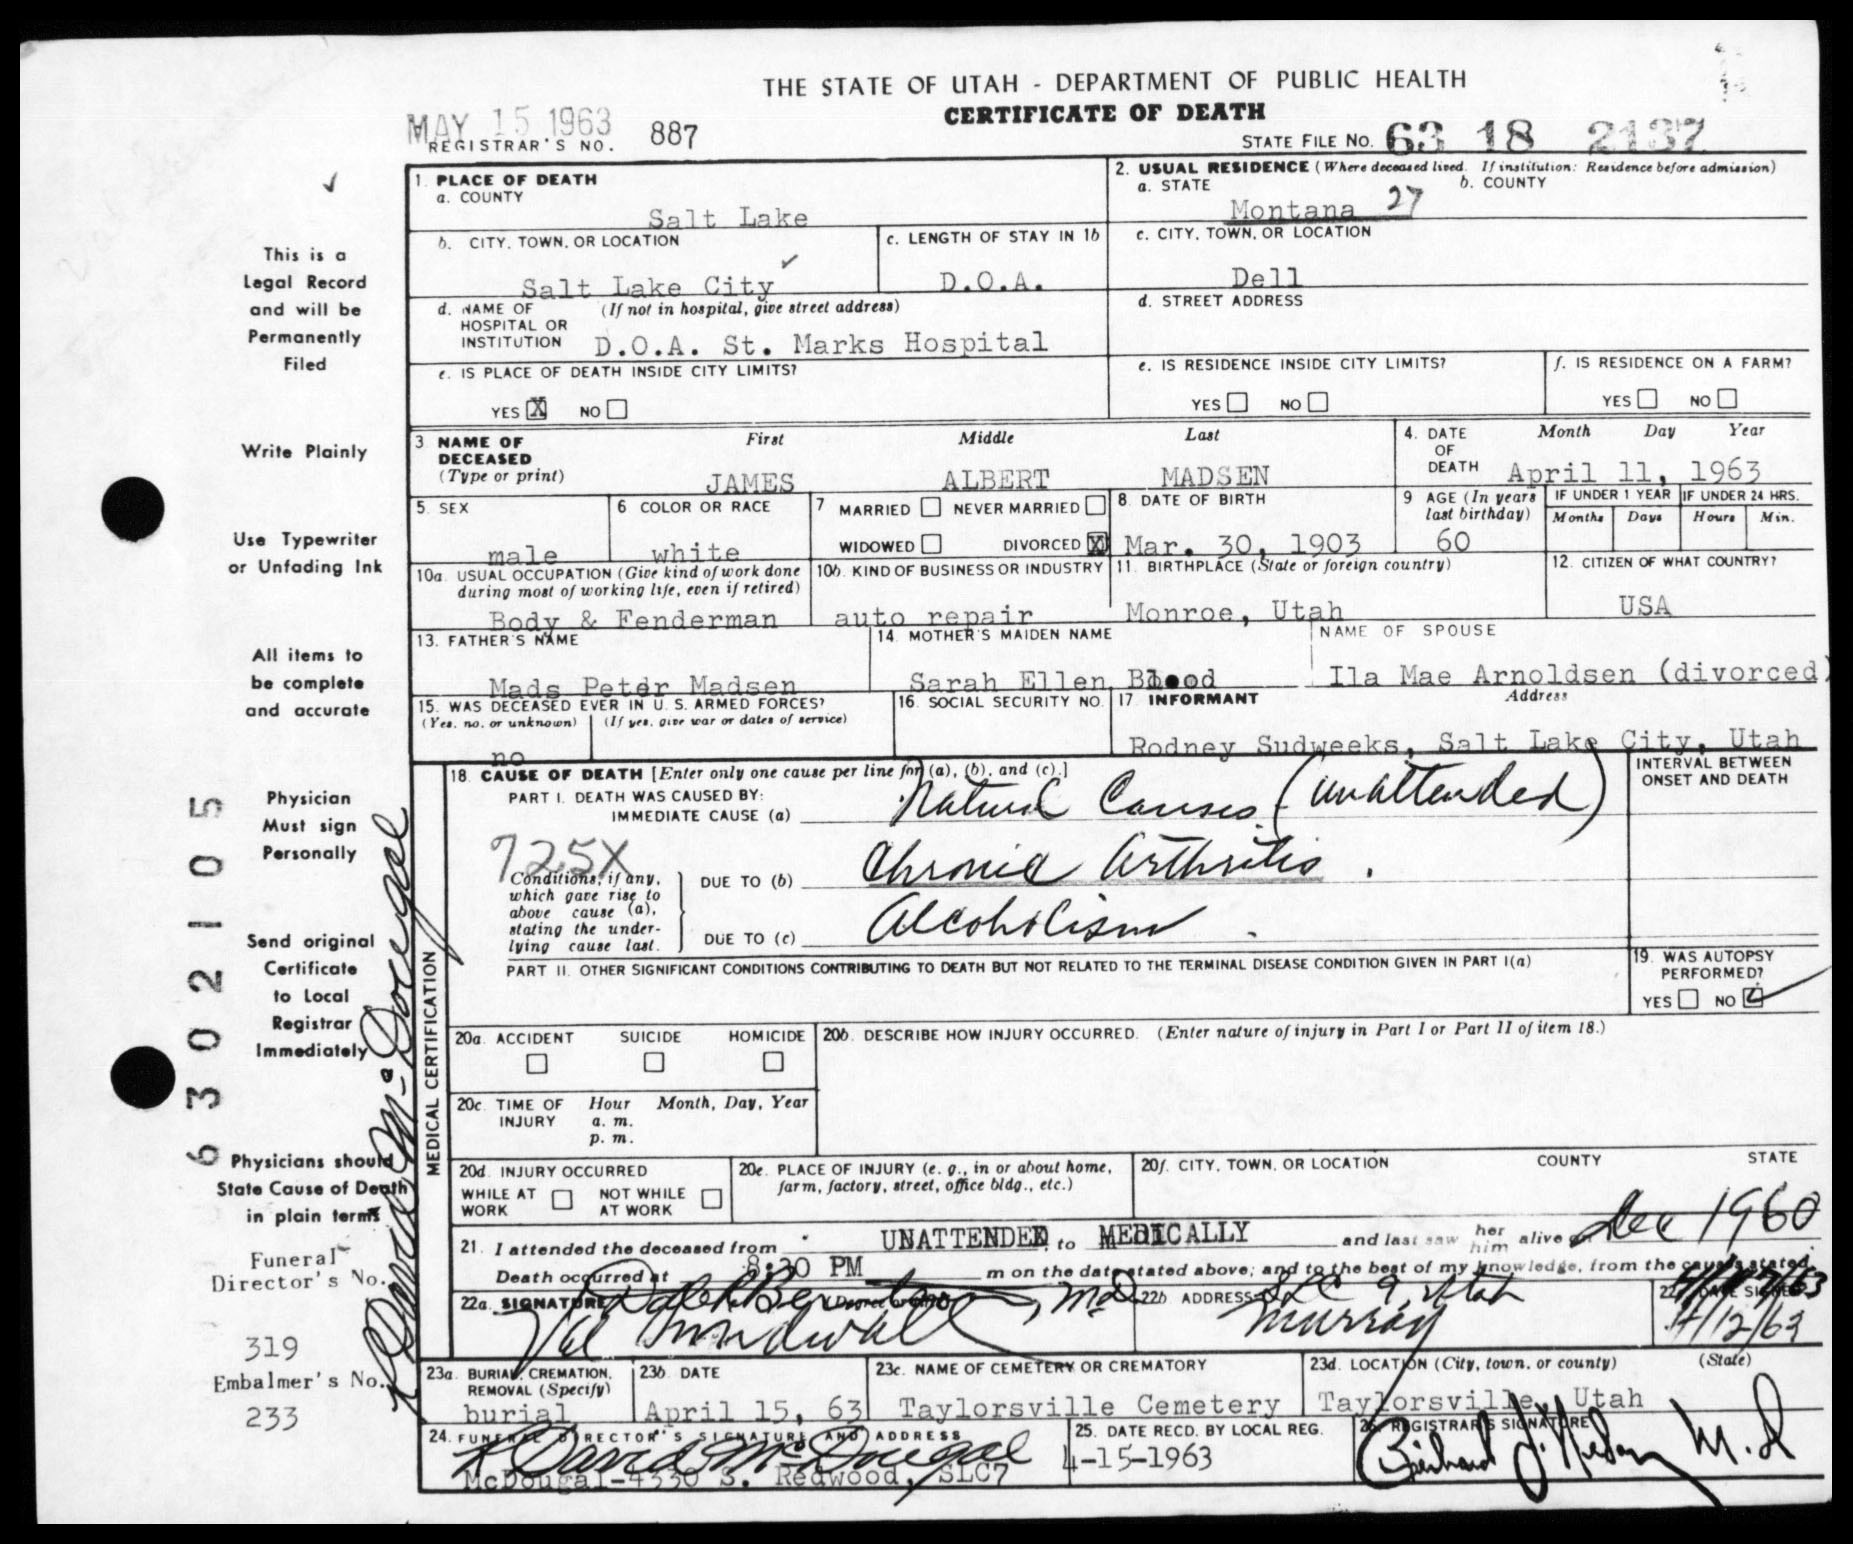 THE STATE OF UTAH - DEPARTMENT OF PUBLIC HEALTH
CERTIFICATE OF DEATH
MAY 15 1963
REGISTRAR'S NO. 887
STATE FILE NO. 63 18 2137
1. PLACE OF DEATH
a. COUNTY
Salt Lake
2. USUAL RESIDENCE (Where deceased lived. If institution: Residence before admission)
a. STATE b. COUNTY
Montana 27
b. CITY, TOWN, OR LOCATION
Salt Lake City
c. LENGTH OF STAY IN 1b
D.O.A.
c. CITY, TOWN, OR LOCATION
Dell
d. NAME OF HOSPITAL OR INSTITUTION (If not in hospital, give street address)
D.O.A. St. Marks Hospital
d. STREET ADDRESS
e. IS PLACE OF DEATH INSIDE CITY LIMITS?
YES X NO
e. IS RESIDENCE INSIDE CITY LIMITS?
YES NO
f. IS RESIDENCE ON A FARM?
YES NO
3. NAME OF DECEASED (Type or print)
First Middle Last
JAMES ALBERT MADSEN
4. DATE OF DEATH Month Day Year
April 11, 1963
5. SEX
male
6 COLOR OR RACE
white
7 MARRIED NEVER MARRIED
WIDOWED DIVORCED X
8. DATE OF BIRTH
Mar. 30, 1903
9 AGE (In years last birthday)
60
IF UNDER 1 YEAR
Months Days
IF UNDER 24 HRS.
Hours Min.
10a. USUAL OCCUPATION (Give kind of work done during most of working life, even if retired)
Body & Fenderman
10b. KIND OF BUSINESS OR INDUSTRY
auto repair
11. BIRTHPLACE (State or foreign country)
Monroe, Utah
12. CITIZEN OF WHAT COUNTRY?
USA
13. FATHER'S NAME
Mads Peter Madsen
14. MOTHER'S MAIDEN NAME
Sarah Ellen Blood
NAME OF SPOUSE
Ila Mae Arnoldsen (divorced)
15. WAS DECEASED EVER IN U. S. ARMED FORCES?
(Yes, no, or unknown) (If yes, give war or dates of service)
no
16. SOCIAL SECURITY NO.
17. INFORMANT Address
Rodney Sudweeks, Salt Lake City, Utah
MEDICAL CERTIFICATION
18. CAUSE OF DEATH [Enter only one cause per line for (a), (b), and (c).]
INTERVAL BETWEEN ONSET AND DEATH
PART I. DEATH WAS CAUSED BY:
IMMEDIATE CAUSE (a) Natural Causes (unattended)
725X
Conditions, if any, which gave rise to above cause (a), stating the underlying cause last.
DUE TO (b) Chronic Arthritis.
DUE TO (c) Alcoholism.
PART II. OTHER SIGNIFICANT CONDITIONS CONTRIBUTING TO DEATH BUT NOT RELATED TO THE TERMINAL DISEASE CONDITION GIVEN IN PART I(a)
19. WAS AUTOPSY PERFORMED?
YES NO ✓
20a. ACCIDENT SUICIDE HOMICIDE
20b. DESCRIBE HOW INJURY OCCURRED. (Enter nature of injury in Part I or Part II of item 18.)
20c. TIME OF INJURY Hour Month, Day, Year
a. m.
p. m.
20d. INJURY OCCURRED
WHILE AT WORK NOT WHILE AT WORK
20e. PLACE OF INJURY (e. g., in or about home, farm, factory, street, office bldg., etc.)
20f. CITY, TOWN, OR LOCATION COUNTY STATE
21. I attended the deceased from UNATTENDED to MEDICALLY and last saw her him alive on Dec 1960
Death occurred at 8:30 PM m on the date stated above; and to the best of my knowledge, from the causes stated.
22a. SIGNATURE (Degree or title) MD
Val Sundwall
22b. ADDRESS SLC 9, Utah
Murray
22c. DATE SIGNED
4/12/63
23a. BURIAL, CREMATION, REMOVAL (Specify)
burial
23b. DATE
April 15, 63
23c. NAME OF CEMETERY OR CREMATORY
Taylorsville Cemetery
23d. LOCATION (City, town, or county) (State)
Taylorsville, Utah
24. FUNERAL DIRECTOR'S SIGNATURE AND ADDRESS
R David McDougal
McDougal-4330 S. Redwood, SLC7
25. DATE RECD. BY LOCAL REG.
4-15-1963
26. REGISTRAR'S SIGNATURE
M.D
This is a
Legal Record
and will be
Permanently
Filed
Write Plainly
Use Typewriter
or Unfading Ink
All items to
be complete
and accurate
Physician
Must sign
Personally
Send original
Certificate
to Local
Registrar
Immediately
Physicians should
State Cause of Death
in plain terms
Funeral
Director's No.
319
Embalmer's No.
233
6302105
R David McDougal